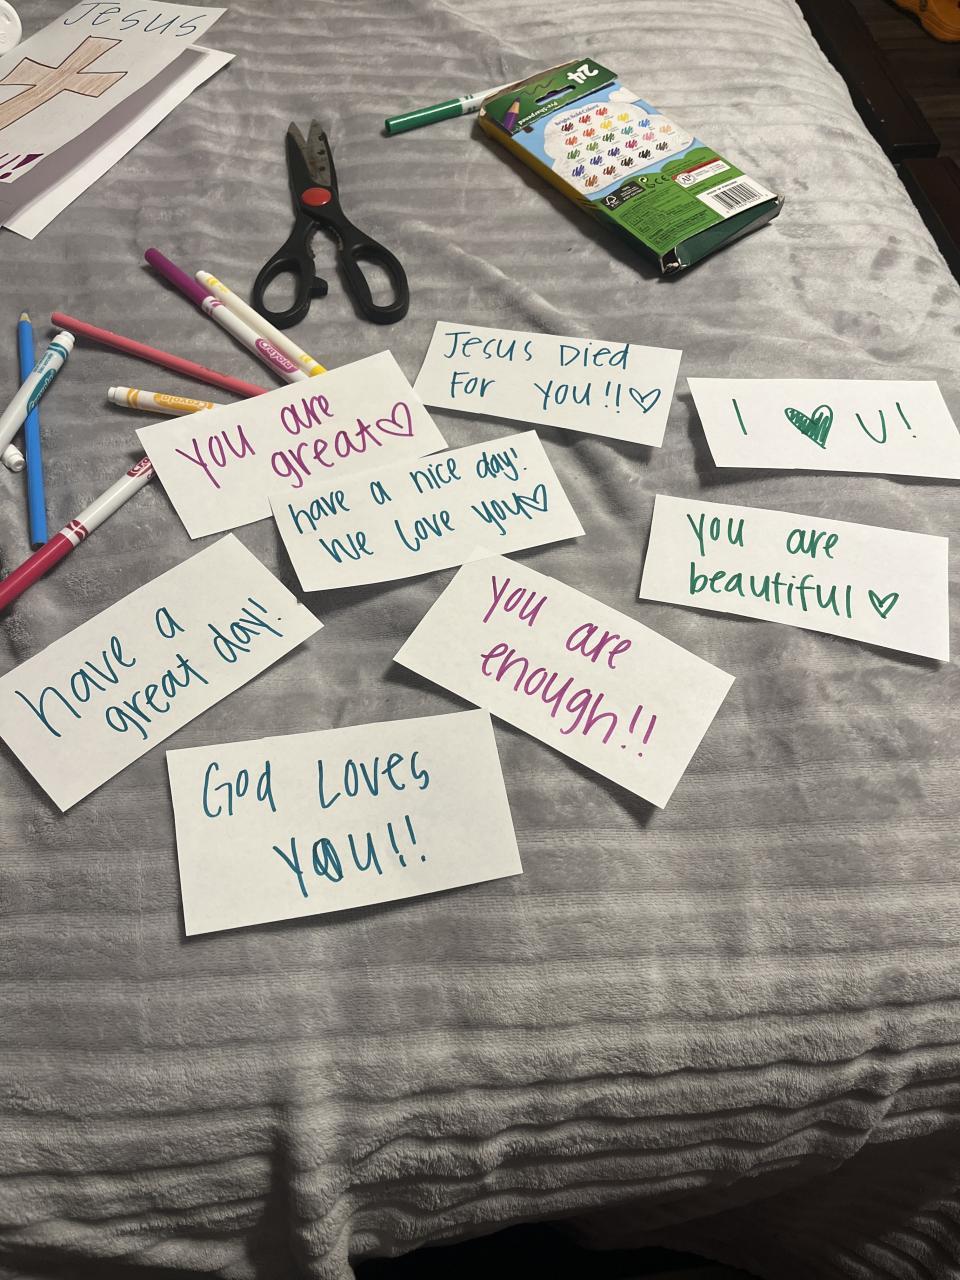 Jesus
24
Pre-Sharpened
Bright, Bold Colors
Crayola
Crayola
Jesus Died
For You!!♡
I ♥ U!
You are
great♡
have a nice day!
We love you♡
You are
beautiful♡
have a
great day!
You are
enough!!
God Loves
You!!